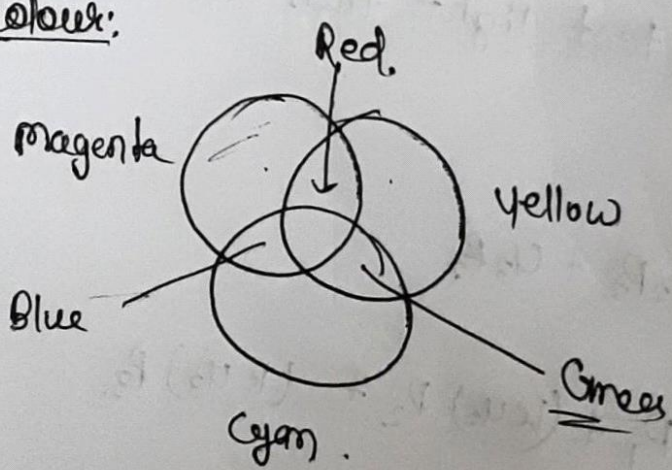 olour:
Red.
Magenta
Yellow
Blue
Cyan.